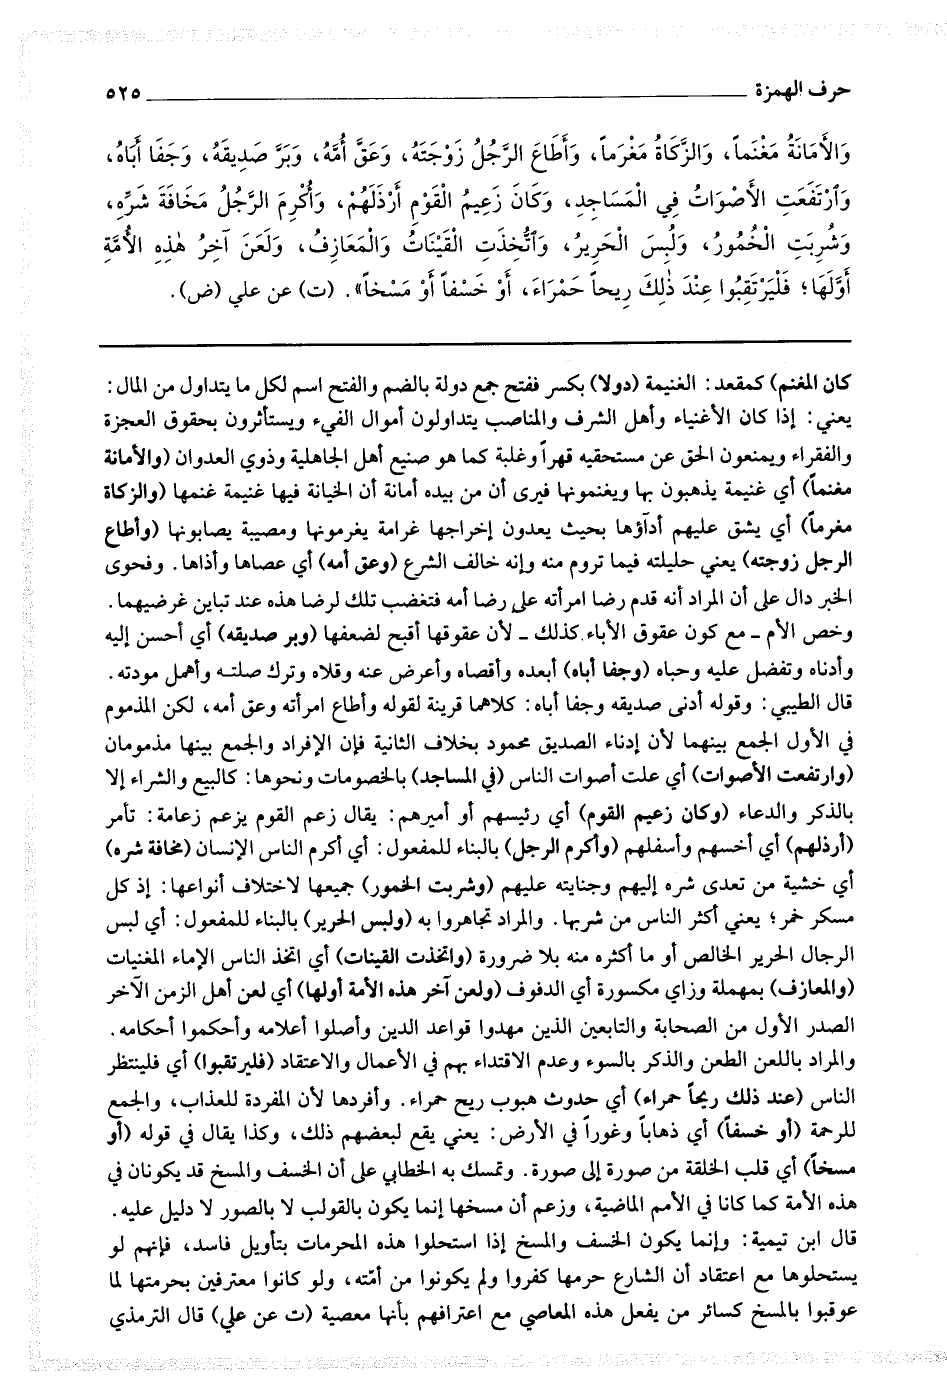 حرف الهمزة ٥٢٥
وَالأَمَانَةُ مَغْنَماً، وَالزَّكَاةُ مَغْرَماً، وَأَطَاعَ الرَّجُلُ زَوْجَتَهُ، وَعَقَّ أُمَّهُ، وَبَرَّ صَدِيقَهُ، وَجَفَا أَبَاهُ،
وَٱرْتَفَعَتِ الأَصْوَاتُ فِي الْمَسَاجِدِ، وَكَانَ زَعِيمُ الْقَوْمِ أَرْذَلَهُمْ، وَأُكْرِمَ الرَّجُلُ مَخَافَةَ شَرِّهِ،
وَشُرِبَتِ الْخُمُورُ، وَلُبِسَ الْحَرِيرُ، وَٱتُّخِذَتِ الْقَيْنَاتُ وَالْمَعَازِفُ، وَلَعَنَ آخِرُ هٰذِهِ الأُمَّةِ
أَوَّلَهَا؛ فَلْيَرْتَقِبُوا عِنْدَ ذٰلِكَ رِيحاً حَمْرَاءَ، أَوْ خَسْفاً أَوْ مَسْخاً». (ت) عن علي (ض).
كان المغنم) كمقعد: الغنيمة (دولا) بكسر ففتح جمع دولة بالضم والفتح اسم لكل ما يتداول من المال:
يعني: إذا كان الأغنياء وأهل الشرف والمناصب يتداولون أموال الفيء ويستأثرون بحقوق العجزة
والفقراء ويمنعون الحق عن مستحقيه قهراً وغلبة كما هو صنيع أهل الجاهلية وذوي العدوان (والأمانة
مغنماً) أي غنيمة يذهبون بها ويغنمونها فيرى أن من بيده أمانة أن الخيانة فيها غنيمة غنمها (والزكاة
مغرماً) أي يشق عليهم أدآؤها بحيث يعدون إخراجها غرامة يغرمونها ومصيبة يصابونها (وأطاع
الرجل زوجته) يعني حليلته فيما تروم منه وإنه خالف الشرع (وعق أمه) أي عصاها وأذاها. وفحوى
الخبر دال على أن المراد أنه قدم رضا امرأته على رضا أمه فتغضب تلك لرضا هذه عند تباين غرضيهما.
وخص الأم ـ مع كون عقوق الأباء كذلك ـ لأن عقوقها أقبح لضعفها (وبر صديقه) أي أحسن إليه
وأدناه وتفضل عليه وحباه (وجفا أباه) أبعده وأقصاه وأعرض عنه وقلاه وترك صلته وأهمل مودته.
قال الطيبي: وقوله أدنى صديقه وجفا أباه: كلاهما قرينة لقوله وأطاع امرأته وعق أمه، لكن المذموم
في الأول الجمع بينهما لأن إدناء الصديق محمود بخلاف الثانية فإن الإفراد والجمع بينها مذمومان
(وارتفعت الأصوات) أي علت أصوات الناس (في المساجد) بالخصومات ونحوها: كالبيع والشراء إلا
بالذكر والدعاء (وكان زعيم القوم) أي رئيسهم أو أميرهم: يقال زعم القوم يزعم زعامة: تأمر
(أرذلهم) أي أخسهم وأسفلهم (وأكرم الرجل) بالبناء للمفعول: أي أكرم الناس الإنسان (مخافة شره)
أي خشية من تعدى شره إليهم وجنايته عليهم (وشربت الخمور) جميعها لاختلاف أنواعها: إذ كل
مسكر خمر؛ يعني أكثر الناس من شربها. والمراد تجاهروا به (ولبس الحرير) بالبناء للمفعول: أي لبس
الرجال الحرير الخالص أو ما أكثره منه بلا ضرورة (واتخذت القينات) أي اتخذ الناس الإماء المغنيات
(والمعازف) بمهملة وزاي مكسورة أي الدفوف (ولعن آخر هذه الأمة أولها) أي لعن أهل الزمن الآخر
الصدر الأول من الصحابة والتابعين الذين مهدوا قواعد الدين وأصلوا أعلامه وأحكموا أحكامه.
والمراد باللعن الطعن والذكر بالسوء وعدم الاقتداء بهم في الأعمال والاعتقاد (فليرتقبوا) أي فلينتظر
الناس (عند ذلك ريحاً حمراء) أي حدوث هبوب ريح حمراء. وأفردها لأن المفردة للعذاب، والجمع
للرحمة (أو خسفاً) أي ذهاباً وغوراً في الأرض: يعني يقع لبعضهم ذلك، وكذا يقال في قوله (أو
مسخاً) أي قلب الخلقة من صورة إلى صورة. وتمسك به الخطابي على أن الخسف والمسخ قد يكونان في
هذه الأمة كما كانا في الأمم الماضية، وزعم أن مسخها إنما يكون بالقولب لا بالصور لا دليل عليه.
قال ابن تيمية: وإنما يكون الخسف والمسخ إذا استحلوا هذه المحرمات بتأويل فاسد، فإنهم لو
يستحلوها مع اعتقاد أن الشارع حرمها كفروا ولم يكونوا من أمّته، ولو كانوا معترفين بحرمتها لما
عوقبوا بالمسخ كسائر من يفعل هذه المعاصي مع اعترافهم بأنها معصية (ت عن علي) قال الترمذي